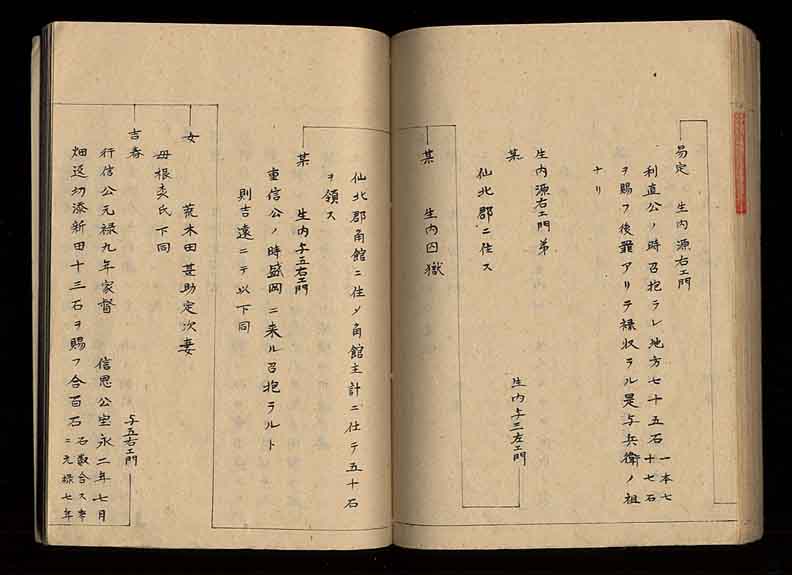 易定 生内源右エ門
利直公ノ時召抱ラレ地方七十五石 一本七十七石
ヲ賜フ後罪アリテ禄収ラル是与兵衛ノ祖
ナリ
生内源右エ門弟
某 生内与三左エ門
仙北郡ニ住ス
某 生内囚獄
仙北郡角館ニ住〆角館主計ニ仕テ五十石
ヲ領ス
某 生内与五右エ門
重信公ノ時盛岡ニ来ル召抱ラルト
則吉遠ニテ以下同
女 荒木田甚助定次妻
母根 氏下同
吉春 与五右エ門
行信公元禄九年家督 信恩公宝永二年七月
畑返切添新田十三石ヲ賜フ合百石 石数合ス
ニ元禄七年